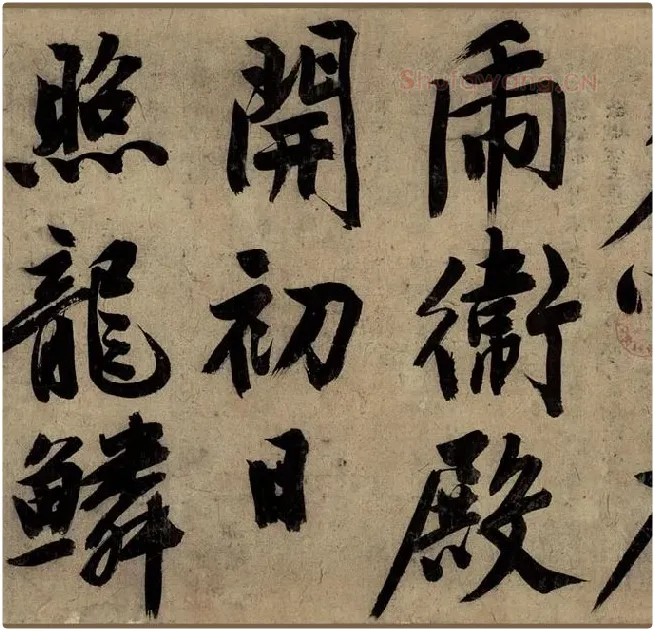 衛殿
開初日
照龍鱗
Shufawang.cn